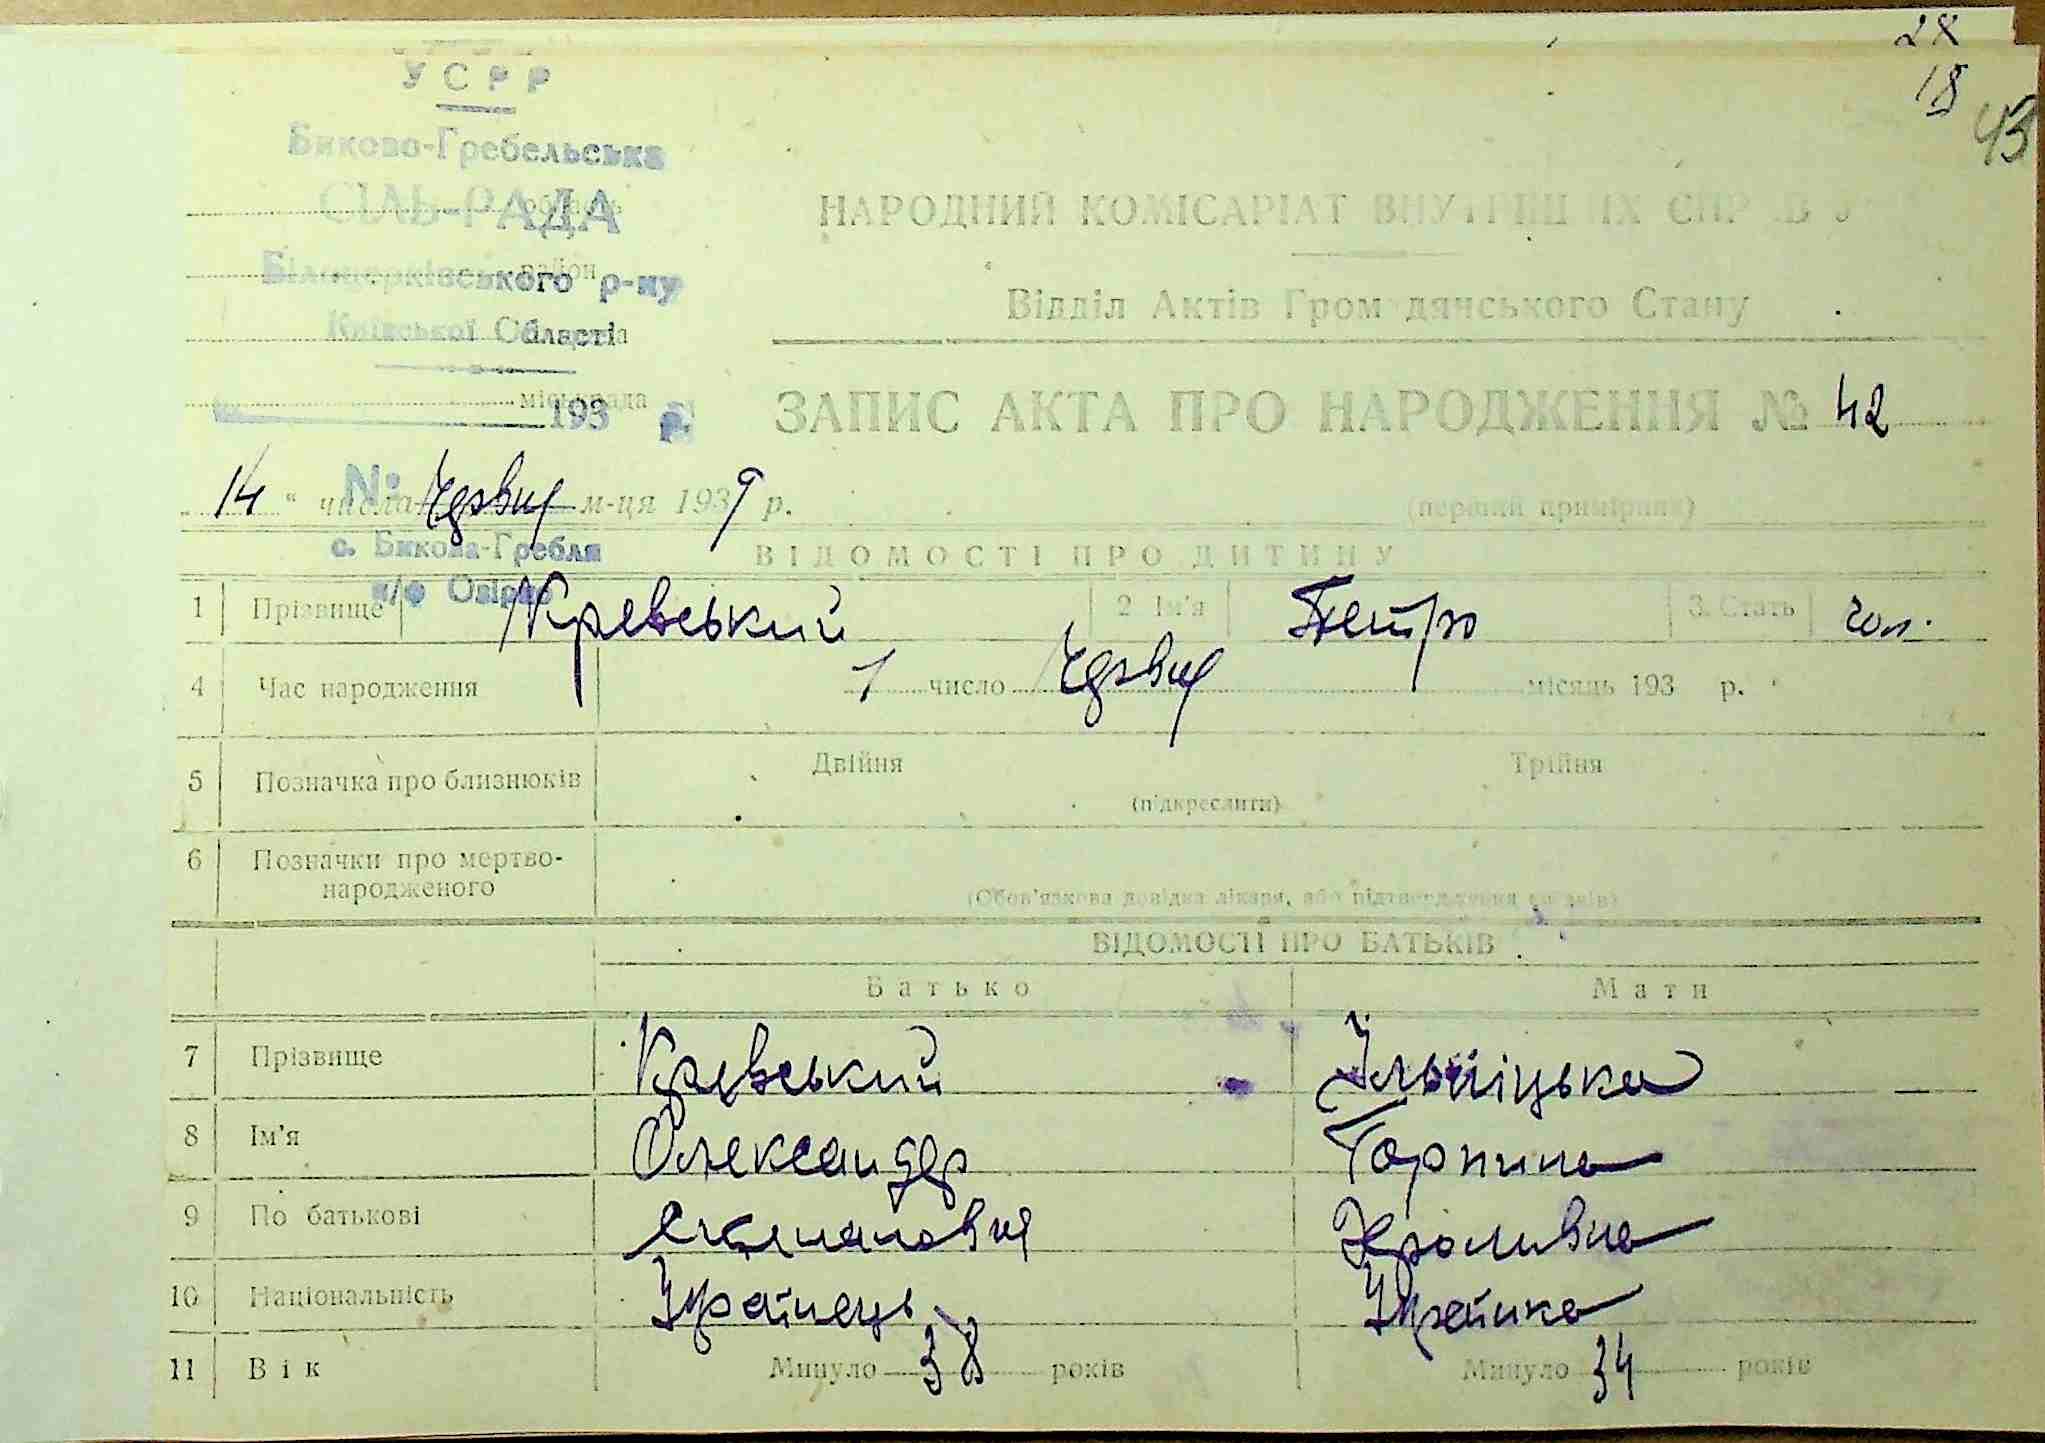 28
18
43
УСРР
Биково-Гребельська
СІЛЬ-РАДА
область
Білоцерківського р-ну
район
Київської Області
міськрада
193 р.
№
с. Бикова-Гребля
п/о Озірна
НАРОДНИЙ КОМІСАРІАТ ВНУТРІШНІХ СПРАВ У
Відділ Актів Громадянського Стану
ЗАПИС АКТА ПРО НАРОДЖЕННЯ № 42
14 " числа Червня м-ця 1939 р. (перший примірник)
ВІДОМОСТІ ПРО ДИТИНУ
1 Прізвище Кревський 2 Ім'я Петро 3. Стать чол.
4 Час народження 1 число Червня місяць 193 р.
5 Позначка про близнюків Двійня Трійня
(підкреслити)
6 Позначки про мертво-
народженого
(Обов'язкова довідка лікаря, або підтвердження свідків)
ВІДОМОСТІ ПРО БАТЬКІВ
Батько Мати
7 Прізвище Кревський Ільніцька
8 Ім'я Олександр Горпина
9 По батькові Степанович
10 Національність Українець Українка
11 Вік Минуло 38 років Минуло 34 років